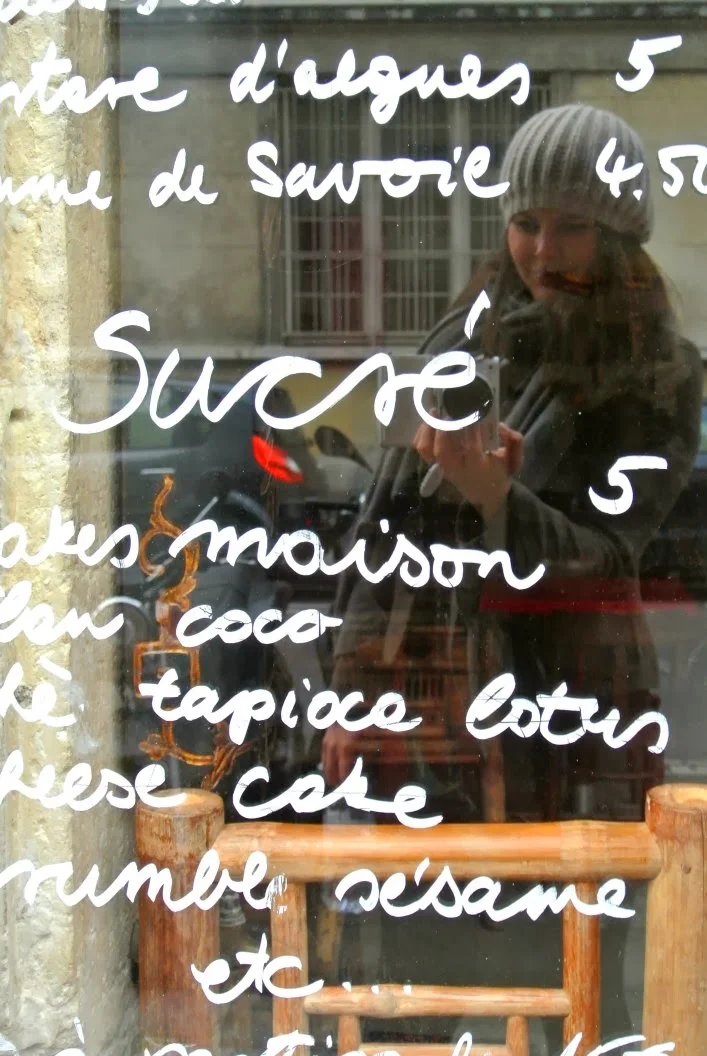 tare d'algues 5
me de Savoie 4.50
Sucré
5
akes maison
lan coco
tapioca lotus
heese cake
rumble sésame
etc...
à partir de